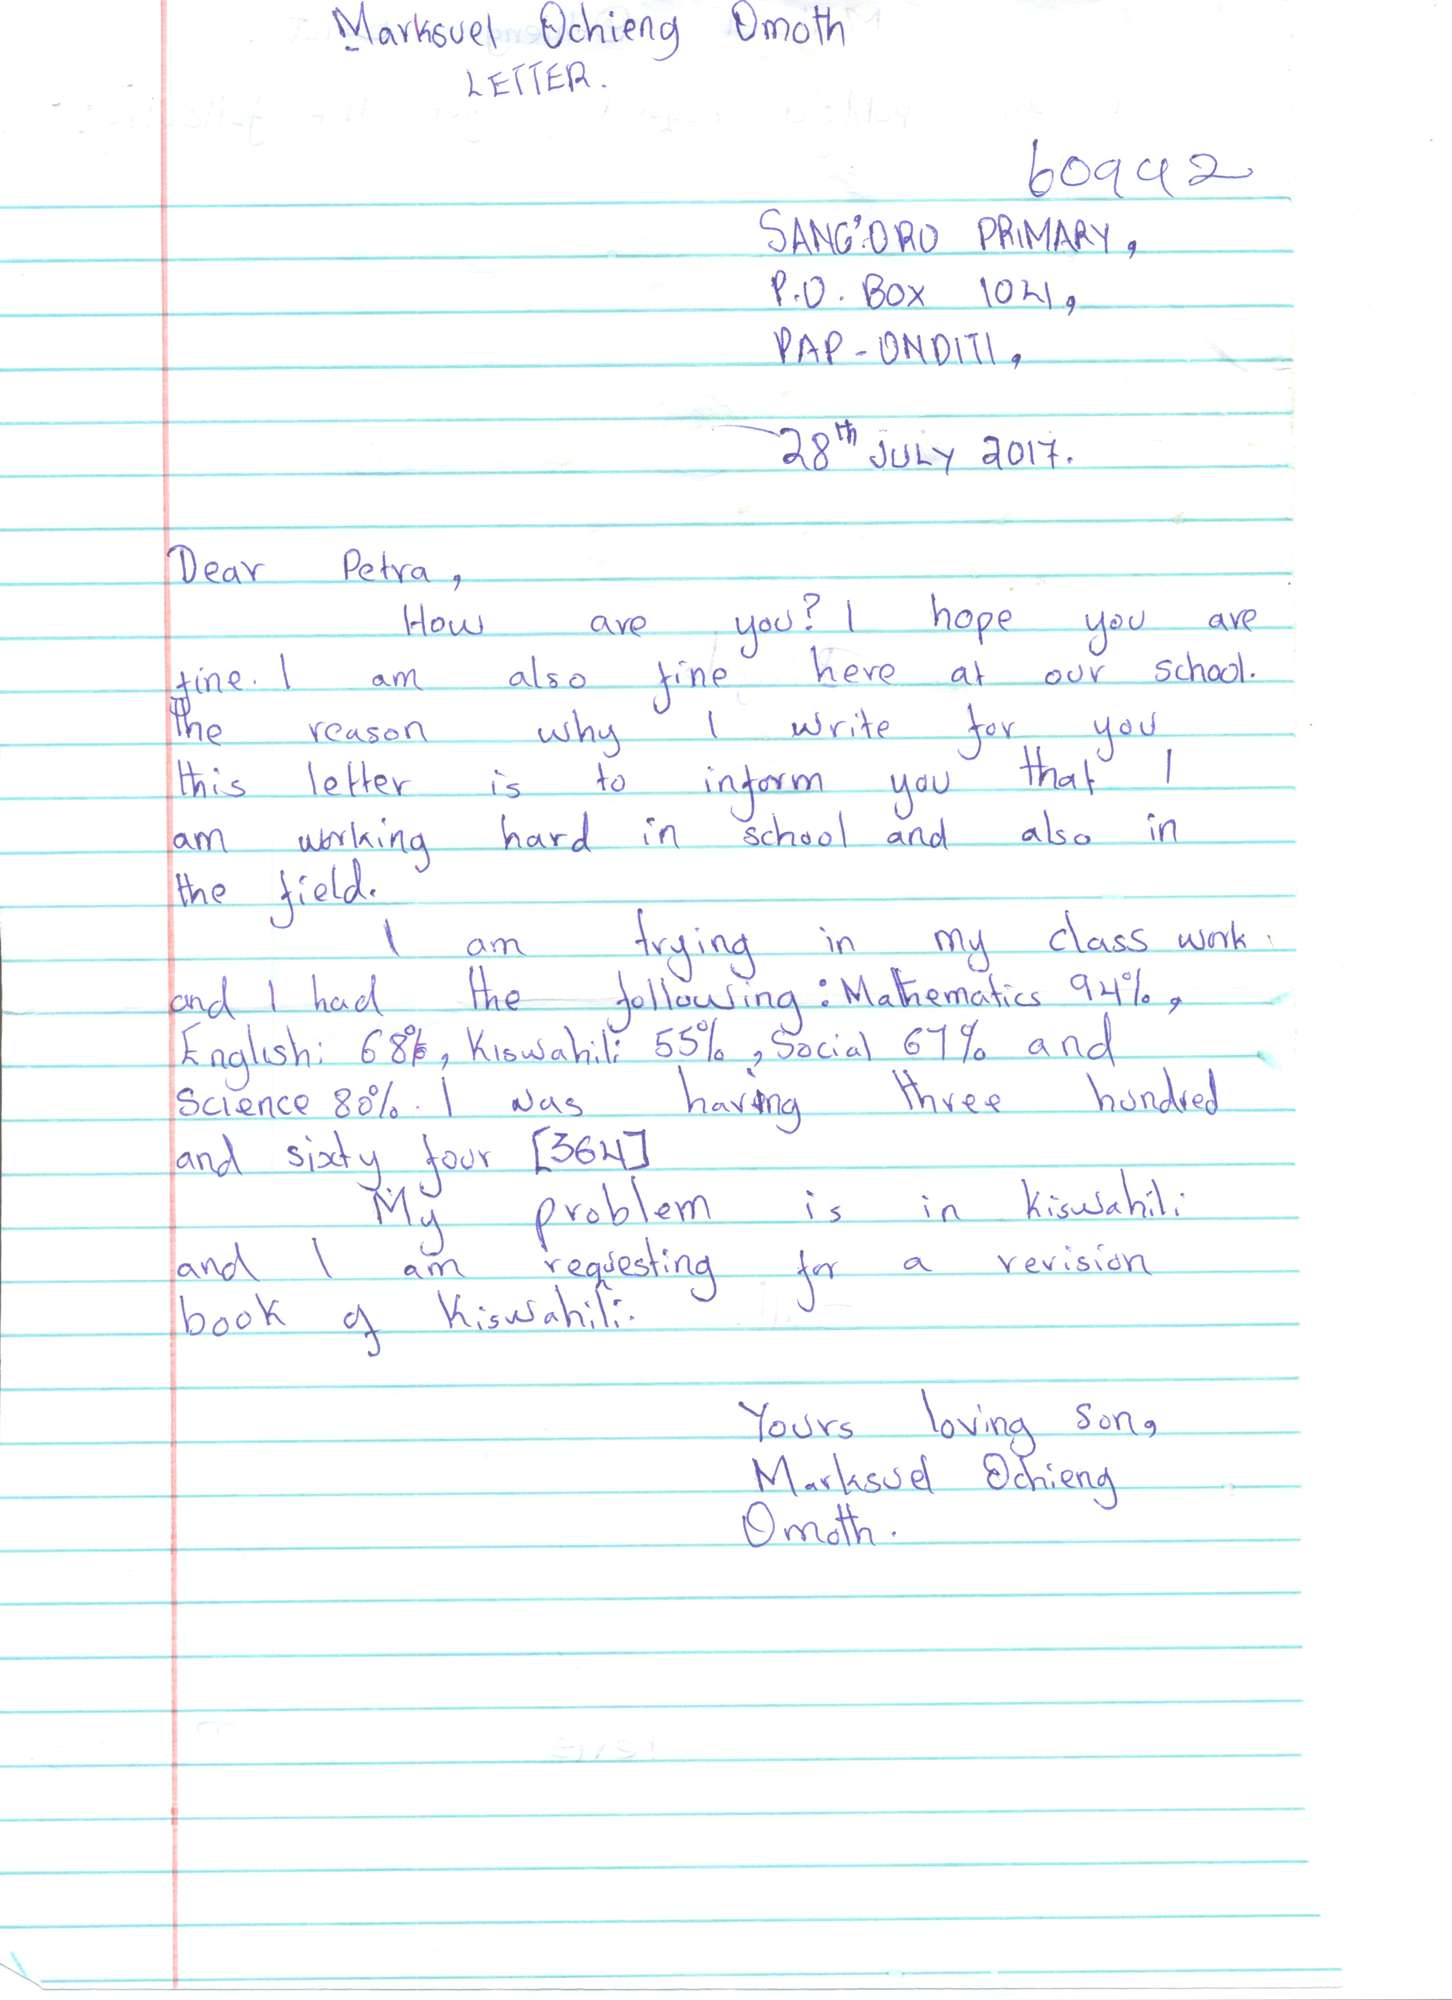 Marksuel Ochieng Omoth
LETTER.
60942
SANG'ORO PRIMARY,
P.O. BOX 1041,
PAP-ONDITI,
28th JULY 2017.
Dear Petra,
How are you? I hope you are
fine. I am also fine here at our school.
The reason why I write for you
this letter is to inform you that I
am working hard in school and also in
the field.
I am trying in my class work
and I had the following: Mathematics 94%,
English: 68%, Kiswahili 55%, Social 67% and
Science 80%. I was having three hundred
and sixty four [364]
My problem is in kiswahili
and I am requesting for a revision
book of Kiswahili.
Yours loving son,
Marksuel Ochieng
Omoth.